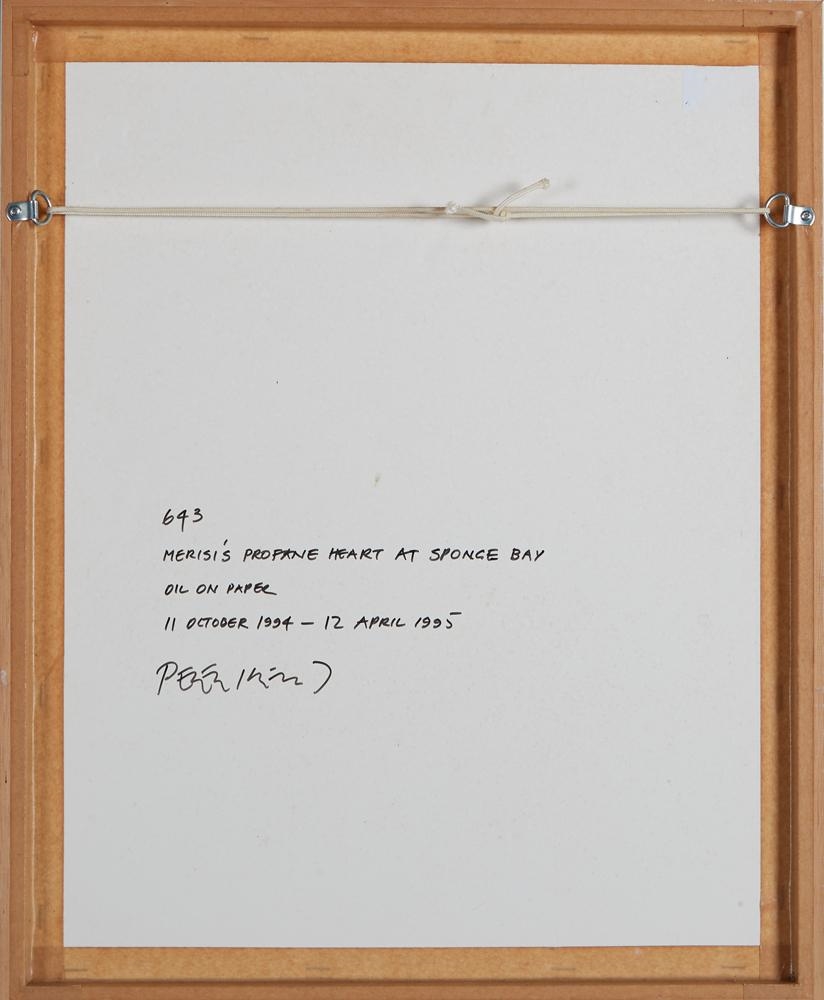 643
MERISI'S PROFANE HEART AT SPONGE BAY
OIL ON PAPER
11 OCTOBER 1994 – 12 APRIL 1995
PETER